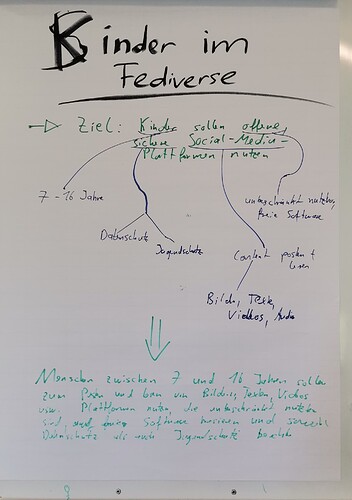 Kinder im
Fediverse
Ziel: Kinder sollen offene,
sichere Social-Media-
Plattformen nutzen
7 - 16 Jahre
unbeschränkt nutzbar,
freie Software
Datenschutz
Jugendschutz
Content posten +
lesen
Bilder, Texte,
Videos, Audio
Menschen zwischen 7 und 16 Jahren sollen
zum Posten und lesen von Bildern, Texten, Videos
usw. Plattformen nutzen, die unbeschränkt nutzbar
sind, auf Software basieren und sowohl
Datenschutz als auch Jugendschutz beachten